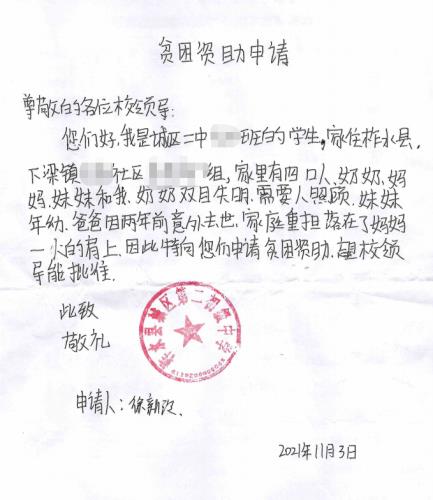 贫困资助申请
尊敬的各位校领导:
您们好,我是城区二中 班的学生,家住柞水县,
下梁镇 社区 组,家里有四口人、奶奶、妈
妈、妹妹和我、奶奶双目失明、需要人照顾、妹妹
年幼、爸爸因两年前意外去世、家庭重担落在了妈妈
一人的肩上、因此特向您们申请贫困资助、望校领
导能批准.
此致
敬礼
柞水县城区第二初级中学
申请人:徐新
2021年11月3日